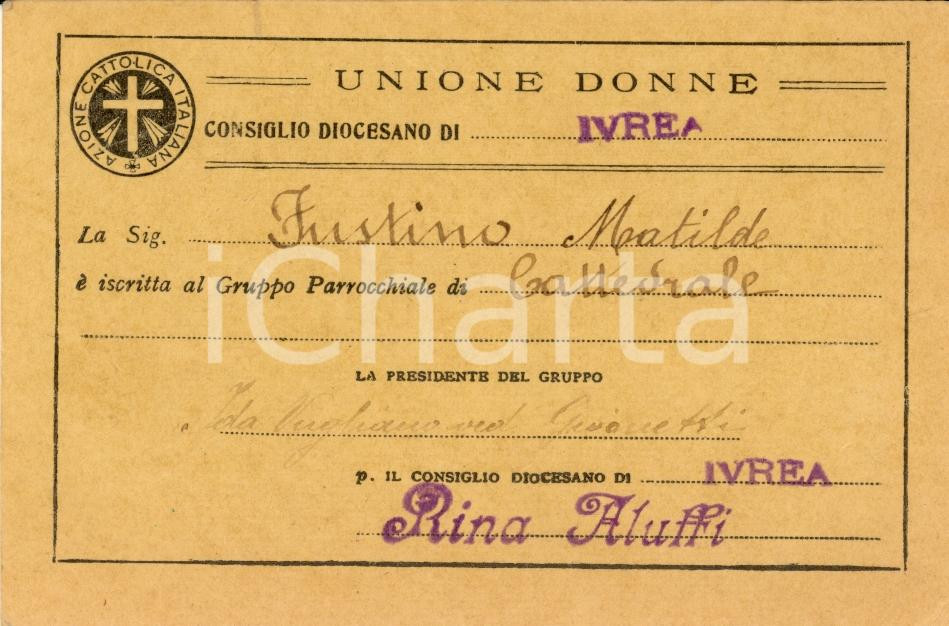 AZIONE CATTOLICA ITALIANA
UNIONE DONNE
CONSIGLIO DIOCESANO DI IVREA
La Sig. Fustino Matilde
è iscritta al Gruppo Parrocchiale di Cattedrale
iCharta
LA PRESIDENTE DEL GRUPPO
Ida Vugliano ved
p. IL CONSIGLIO DIOCESANO DI IVREA
Rina Aluffi